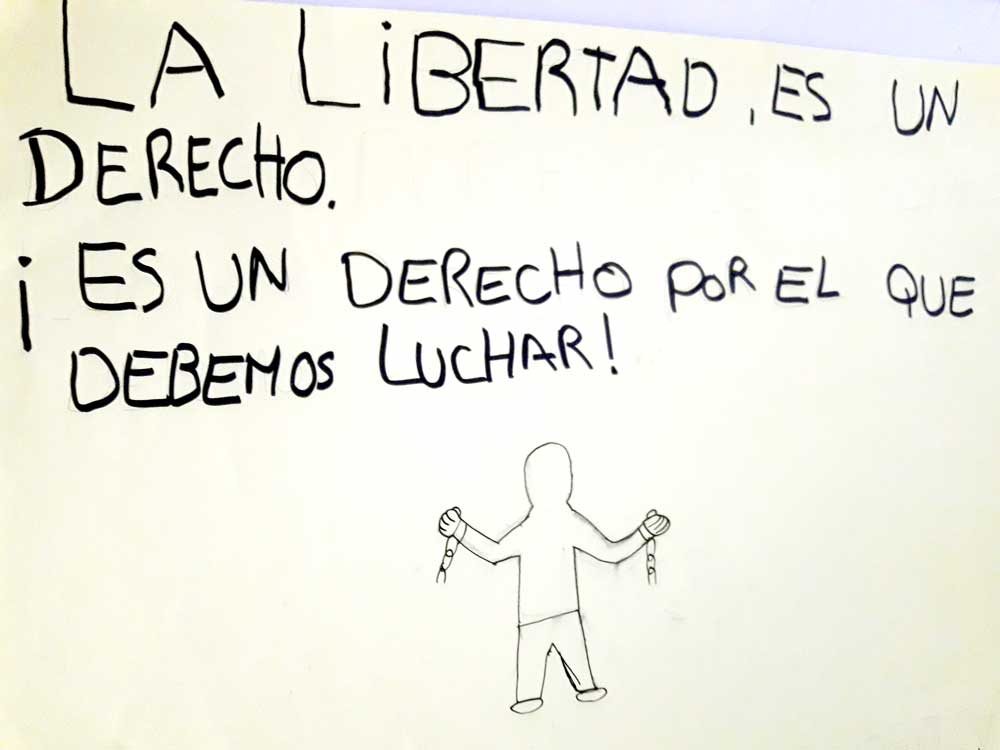 LA LiBERTAD, ES UN
DERECHO.
¡ES UN DERECHO POR EL QUE
DEBEMOS LUCHAR!